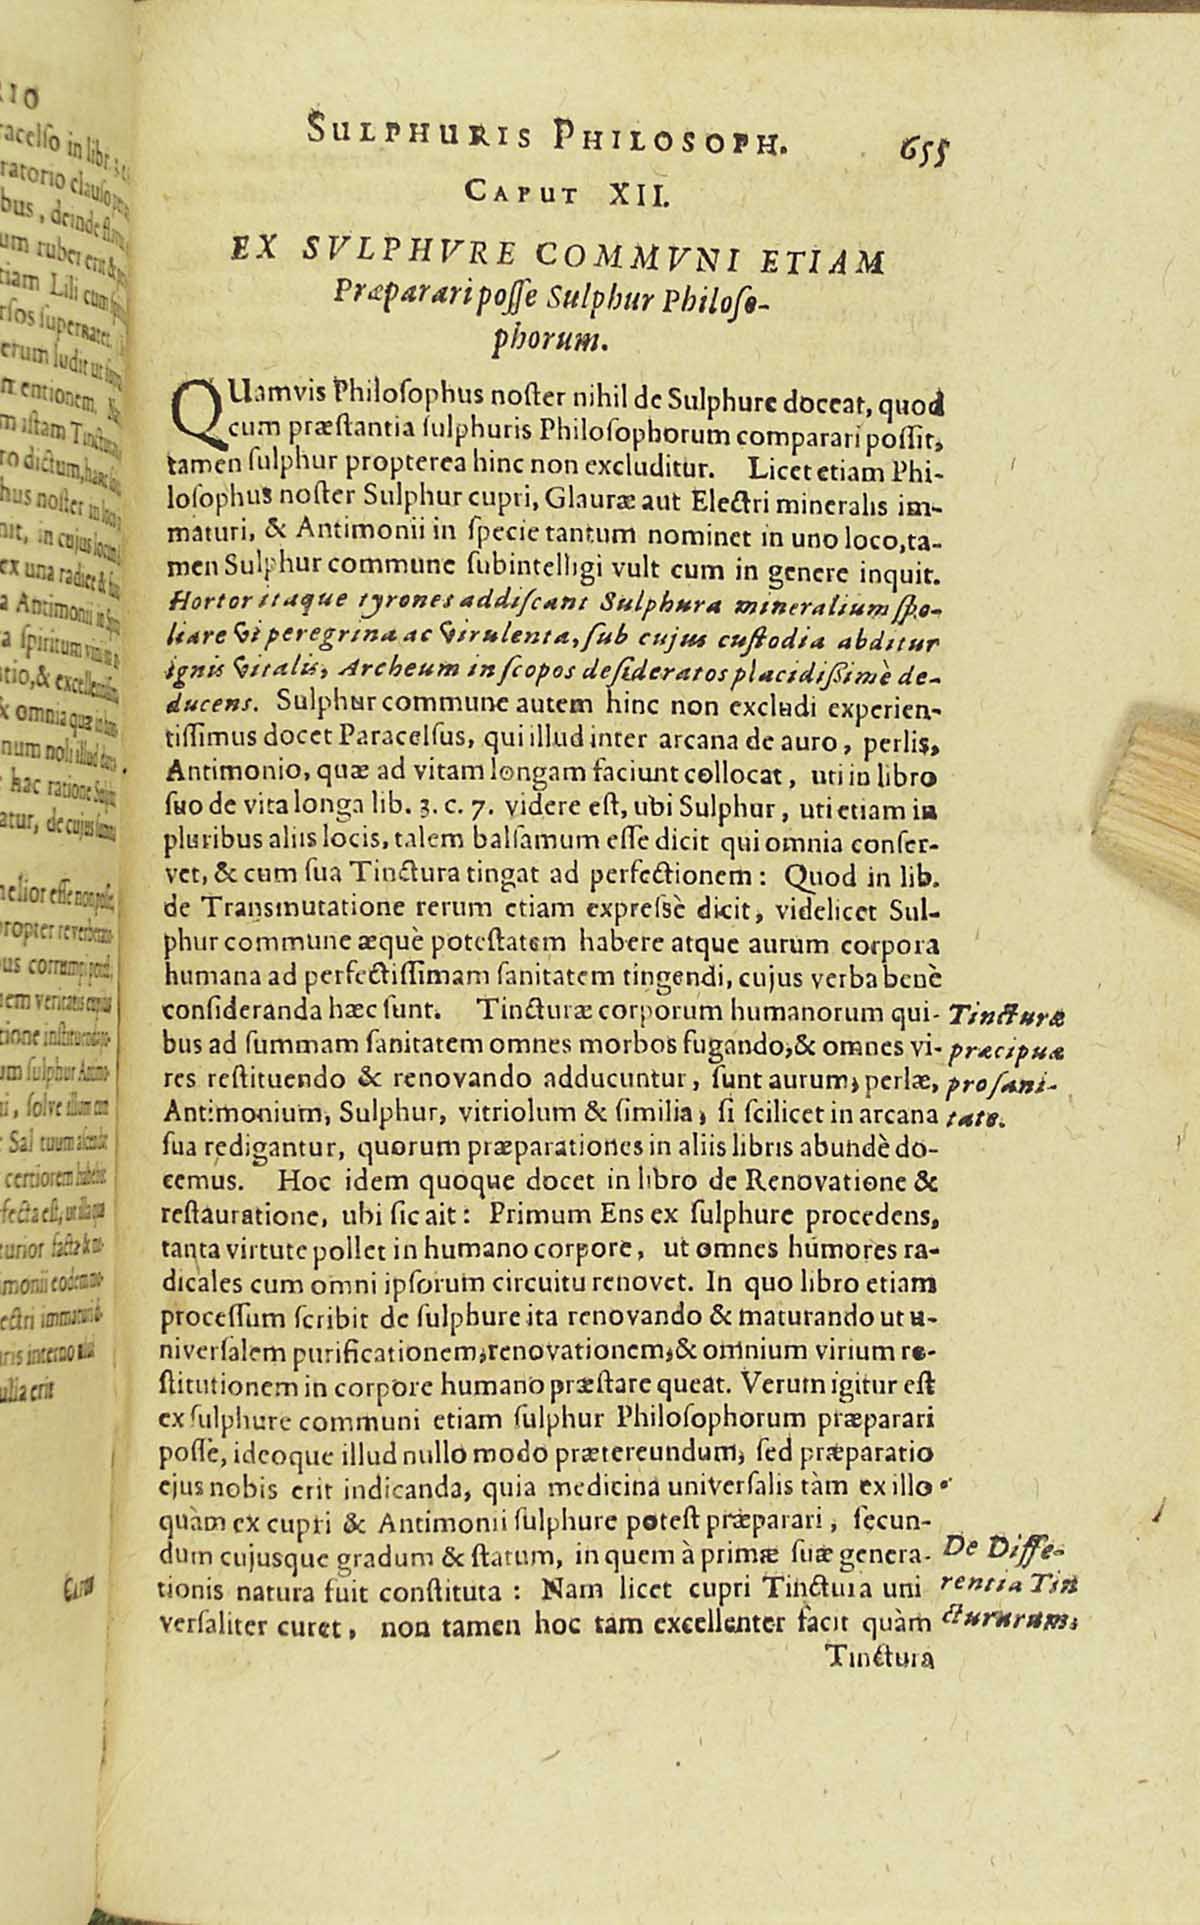 SULPHURIS PHILOSOPH. 655
CAPUT XII.
EX SVLPHVRE COMMVNI ETIAM
Præparari posse Sulphur Philoso-
phorum.
QUamvis Philosophus noster nihil de Sulphure doceat, quod
cum præstantia sulphuris Philosophorum comparari possit,
tamen sulphur propterea hinc non excluditur. Licet etiam Phi-
losophus noster Sulphur cupri, Glauræ aut Electri mineralis im-
maturi, & Antimonii in specie tantum nominet in uno loco, ta-
men Sulphur commune subintelligi vult cum in genere inquit.
Hortor itaque tyrones addiscant Sulphura mineralium spo-
liare vi peregrina ac virulenta, sub cujus custodia abditur
ignis vitalis, Archeum in scopos desideratos placidissimè de-
ducens. Sulphur commune autem hinc non excludi experien-
tissimus docet Paracelsus, qui illud inter arcana de auro, perlis,
Antimonio, quæ ad vitam longam faciunt collocat, uti in libro
suo de vita longa lib. 3. c. 7. videre est, ubi Sulphur, uti etiam in
pluribus aliis locis, talem balsamum esse dicit qui omnia conser-
vet, & cum sua Tinctura tingat ad perfectionem: Quod in lib.
de Transmutatione rerum etiam expressè dicit, videlicet Sul-
phur commune æquè potestatem habere atque aurum corpora
humana ad perfectissimam sanitatem tingendi, cujus verba benè
consideranda hæc sunt. Tincturæ corporum humanorum qui-
bus ad summam sanitatem omnes morbos fugando, & omnes vi-
res restituendo & renovando adducuntur, sunt aurum, perlæ,
Antimonium, Sulphur, vitriolum & similia, si scilicet in arcana
sua redigantur, quorum præparationes in aliis libris abundè do-
cemus. Hoc idem quoque docet in libro de Renovatione &
restauratione, ubi sic ait: Primum Ens ex sulphure procedens,
tanta virtute pollet in humano corpore, ut omnes humores ra-
dicales cum omni ipsorum circuitu renovet. In quo libro etiam
processum scribit de sulphure ita renovando & maturando ut u-
niversalem purificationem, renovationem, & omnium virium re-
stitutionem in corpore humano præstare queat. Verum igitur est
ex sulphure communi etiam sulphur Philosophorum præparari
posse, ideoque illud nullo modo prætereundum, sed præparatio
ejus nobis erit indicanda, quia medicina universalis tàm ex illo
quàm ex cupri & Antimonii sulphure potest præparari, secun-
dum cujusque gradum & statum, in quem à primæ suæ genera-
tionis natura fuit constituta: Nam licet cupri Tinctura uni
versaliter curet, non tamen hoc tam excellenter facit quàm
Tinctura
Tincturæ
præcipuæ
pro sani-
tate.
De Diffe-
rentia Tin
cturarum,